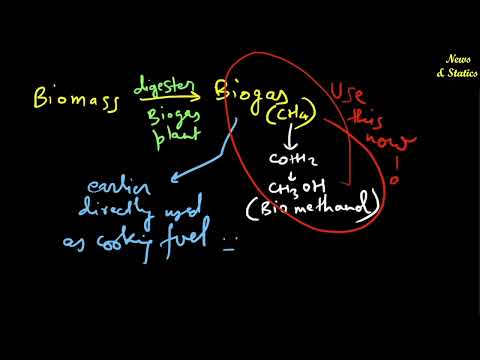 News
& Statics
Biomass
digester
Biogas
plant
Biogas
(CH4)
CO+H2
CH3OH
(Bio methanol)
Use
this
now!
earlier
directly used
as cooking fuel